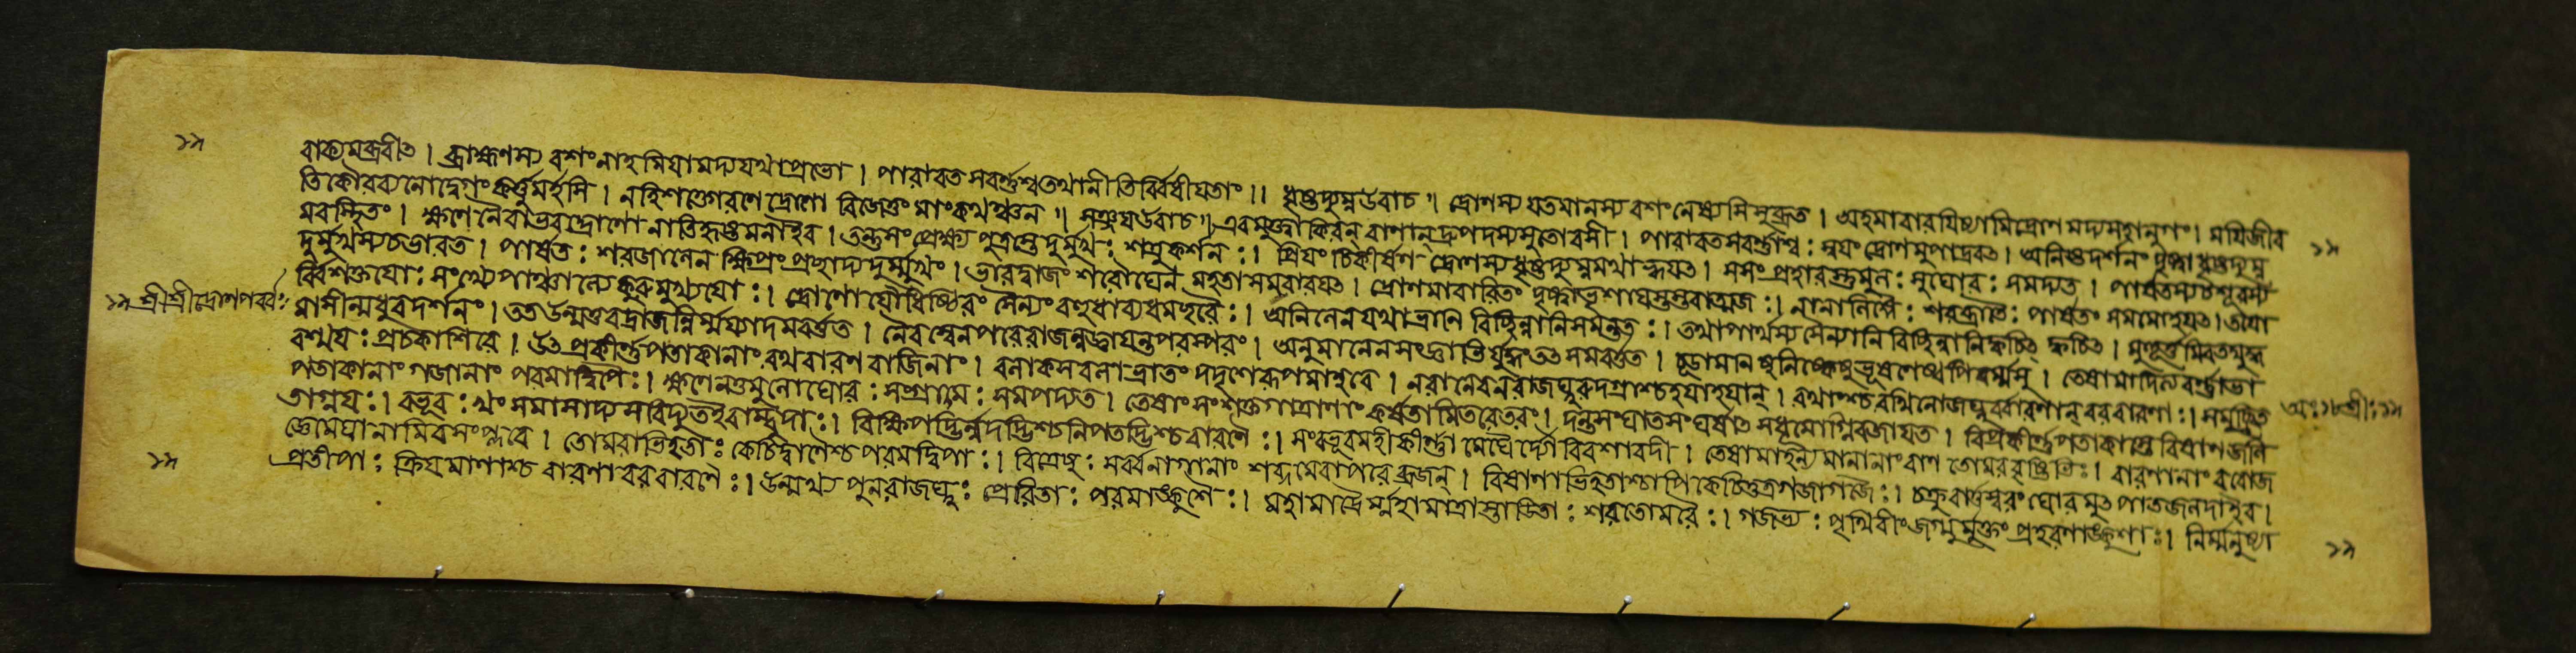 বাক্যমব্রবীত । ব্রাহ্মণস্য বশংনাহমিয়ামদ্যযথাপ্রভো । পারাবতসবর্ণাশ্বতথানীতির্বিধীয়তাং ।। ধৃষ্টদ্যুম্নউবাচ ॥ দ্রোণস্য যতমানস্য বশংনৈষ্যসিসুব্রত । অহমাবারয়িষ্যামিদ্রোণমদ্যসহানুগং । ময়িজীব
তিকৌরব্যনোদ্বেগংকর্ত্তুমর্হসি । নহিশক্তোরণেদ্রোণো বিজেতুংমাংকথঞ্চন ॥ সঞ্জয়উবাচ ॥ এবমুক্ত্বাকিরন্ বাণান্ দ্রুপদস্যসুতোবলী । পারাবতসবর্ণাশ্বঃ স্বয়ংদ্রোণমুপাদ্রবত । অনিষ্টদর্শনং দৃষ্ট্বাধৃষ্টদ্যুম্ন
মবস্থিতং । ক্ষণেনৈবাভবদ্দ্রোণো নাতিহৃষ্টমনাইব । তন্তুসংপ্রেক্ষ্য পুত্রস্তেদুর্মুখঃ শত্রুকর্শনঃ । প্রিয়ংচিকীর্ষন্ দ্রোণস্যধৃষ্টদ্যুম্নমথাহ্বয়ত । সসংপ্রহারস্তুমুলঃ সুঘোরঃ সমপদ্যত । পার্ষতস্যচশূরস্য
দুর্মুখস্যচভারত । পার্ষতঃ শরজালেন ক্ষিপ্রংপ্রচ্ছাদ্যদুর্ম্মুখং । ভারদ্বাজংশরৌঘেন মহতাসমবারয়ত । দ্রোণমাবারিতং দৃষ্ট্বাভৃশায়স্তস্তবাত্মজঃ । নানালিঙ্গৈঃ শরব্রাতৈঃ পার্ষতং সমমোহয়ত ।তয়ো
র্বিষক্তয়োঃ সংখ্যেপাঞ্চাল্যকুরুমুখ্যয়োঃ । দ্রোণোযৌধিষ্ঠিরংসৈন্যংবহুধাব্যধমচ্ছরৈঃ । অনিলেনযথাভ্রানি বিচ্ছিন্নানিসমন্ততঃ । তথাপার্থস্যসৈন্যানি বিচ্ছিন্নানিক্বচিত্ ক্বচিত । মুহূর্ত্তমিবতদ্যুদ্ধ
মাসীন্মধুরদর্শনং । ততউন্মত্তবদ্রাজন্নির্ম্মর্যাদমবর্ত্তত । নৈবস্বেনপরেরাজন্নজ্ঞায়ন্তপরস্পরং । অনুমানেনসংজ্ঞাভির্যুদ্ধংতত্সমবর্ত্তত । চূড়ামণিষুনিষ্কেষুভূষণেষ্বপিবর্ম্মসু । তেষামাদিত্যবর্ণাভা
রশ্ময়ঃ প্রচকাশিরে । তত্প্রকীর্ণপতাকানাং রথবারণবাজিনাং । বলাকসবলাভ্রাভং দদৃশেরূপমাহবে । নরানেবনরাজঘ্নুরুদগ্রাশ্চহয়াহয়ান্ । রথাংশ্চরথিনোজঘ্নুর্বারণান্ বরবারণাঃ । সমুচ্ছ্রিত
পতাকানাং গজানাং পরমদ্বিপৈঃ । ক্ষণেনতুমুলোঘোরঃ সংগ্রামঃ সমপদ্যত । তেষাং সংসক্তগাত্রাণাং কর্ষতামিতরেতরং । দন্তসংঘাতসংঘর্ষাত্ সধূমোগ্নিরজায়ত । বিপ্রকীর্ণপতাকাস্তে বিষাণজনি
তাগ্নয়ঃ । বভূবুঃ খং সমাসাদ্য সবিদ্যুতইবাম্বুদাঃ । বিক্ষিপদ্ভির্নদদ্ভিশ্চ নিপতদ্ভিশ্চ বারণৈঃ । সংবভূবমহীকীর্ণা মেঘৈর্দ্যৌরিবশারদী । তেষামাহন্যমানানাং বাণতোমরবৃষ্টিভিঃ । বারণানাং রবোজ
জ্ঞেমেঘানামিবসংপ্লবে । তোমরাভিহতাঃ কেচিদ্বাণৈশ্চপরমদ্বিপাঃ । বিত্রেসুঃ সর্ব্বনাগানাং শব্দমেবাপরেব্রজন্ । বিষাণাভিহতাশ্চাপিকেচিত্তত্রগজাগজৈঃ । চক্রুরার্ত্তস্বরংঘোরমুত্পাতজলদাইব ।
প্রতীপাঃ ক্রিয়মাণাশ্চ বারণাবরবারণৈঃ । উন্মথ্য পুনরাজঘ্নুঃ প্রেরিতাঃ পরমাঙ্কুশৈঃ । মহামাত্রৈর্ম্মহামাত্রাস্তাড়িতাঃ শরতোমরৈঃ । গজেভ্যঃ পৃথিবীংজগ্মুর্মুক্তপ্রহরণাঙ্কুশাঃ । নির্ম্মনুষ্যা
১৯
১৯
১৯ শ্রীশ্রীদ্রোণপর্ব্বঃ
অঃ ১৮ শ্রীঃ ১৯
১৯
১৯